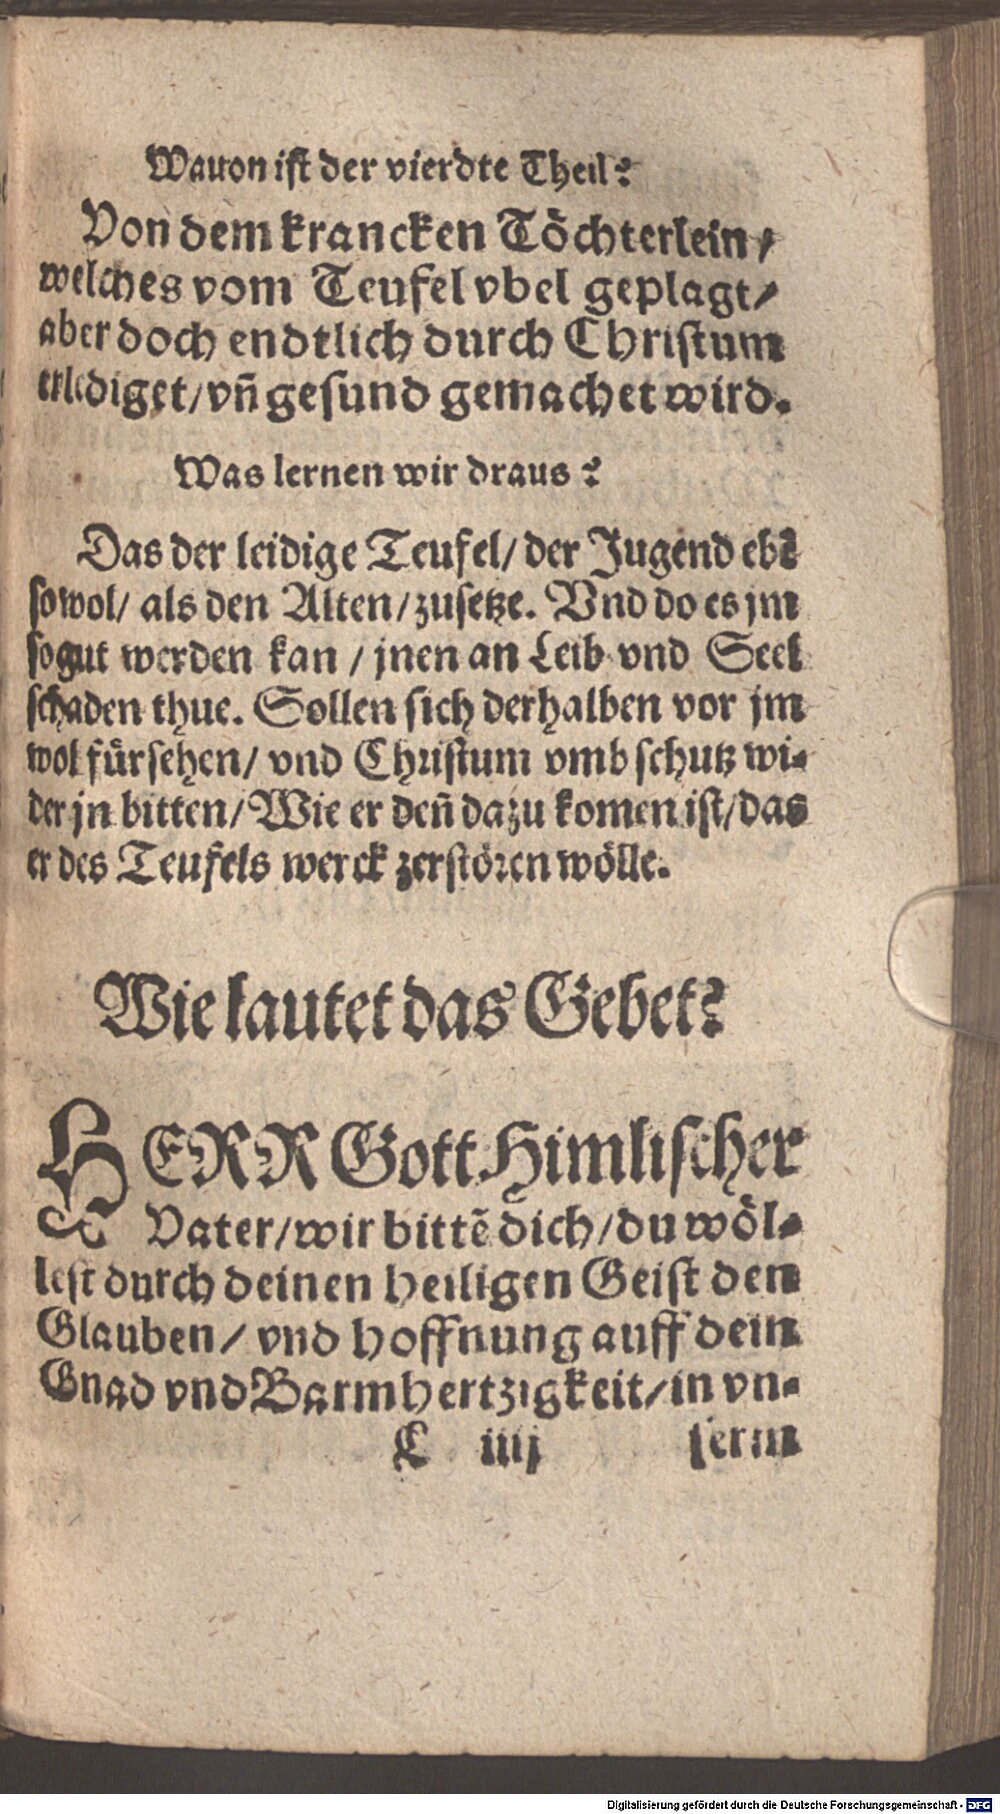 Wauon ist der vierdte Theil?
Von dem krancken Töchterlein/
welches vom Teufel vbel geplagt/
aber doch endtlich durch Christum
erlediget/ vn̄ gesund gemachet wird.
Was lernen wir draus?
Das der leidige Teufel/ der Jugend ebẽ
sowol/ als den Alten/ zusetze. Vnd do es jm
so gut werden kan/ jnen an Leib vnd Seel
schaden thue. Sollen sich derhalben vor jm
wol fürsehen/ vnd Christum vmb schutz wi-
der jn bitten/ Wie er den̄ dazu komen ist/ das
er des Teufels werck zerstören wölle.
Wie lautet das Gebet?
HERR Gott Himlischer
Vater/ wir bittẽ dich/ du wöl-
lest durch deinen heiligen Geist den
Glauben/ vnd hoffnung auff dein
Gnad vnd Barmhertzigkeit/ in vn-
C iiij serm
Digitalisierung gefördert durch die Deutsche Forschungsgemeinschaft - DFG